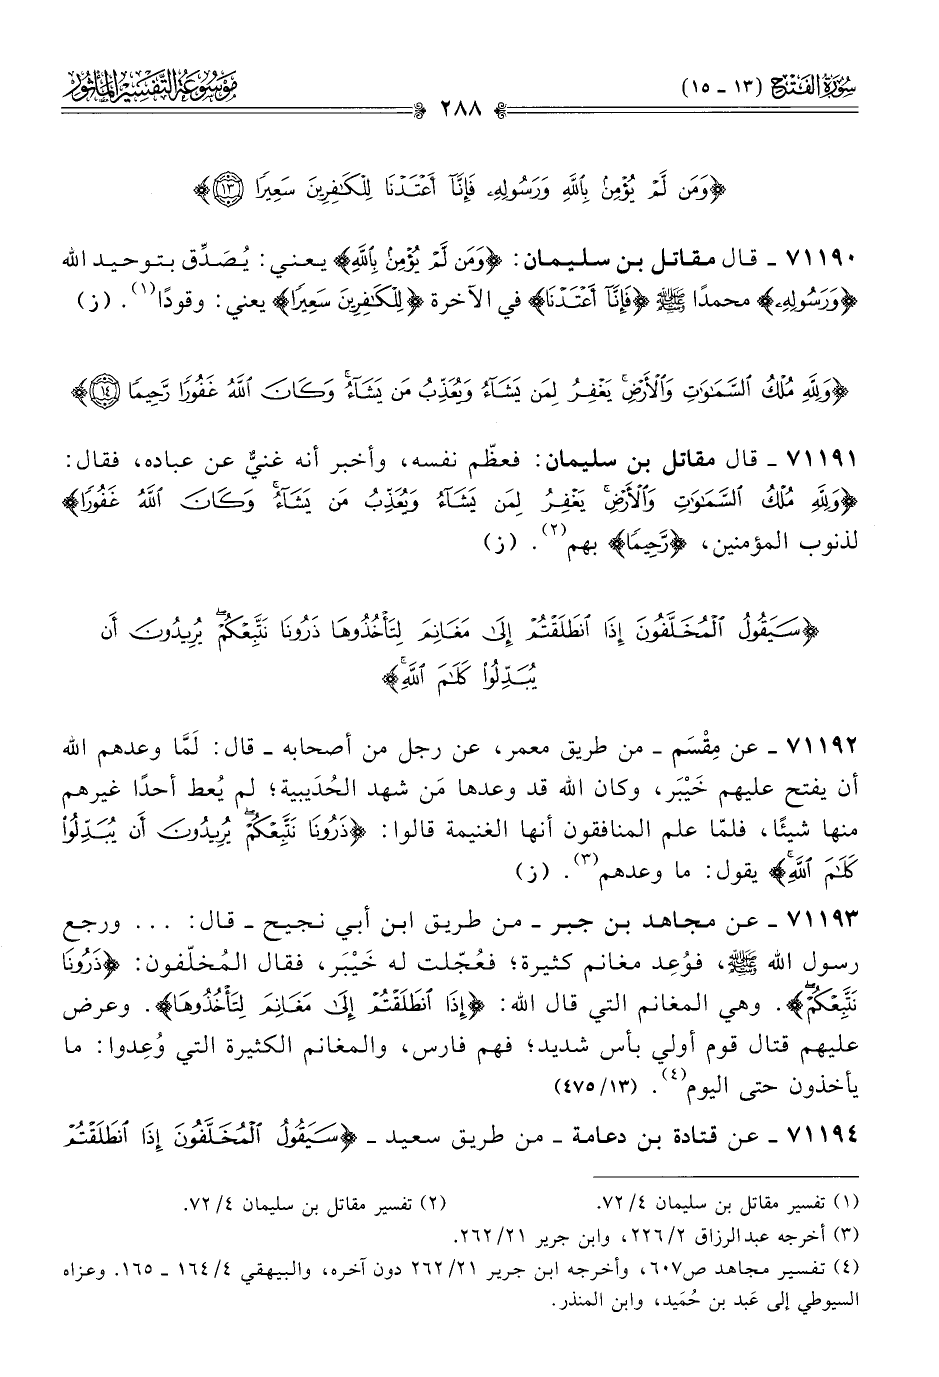 سورة الفتح (١٣ - ١٥)
موسوعة التفسير المأثور
٢٨٨
﴿وَمَن لَّمْ يُؤْمِنۢ بِٱللَّهِ وَرَسُولِهِۦ فَإِنَّآ أَعْتَدْنَا لِلْكَٰفِرِينَ سَعِيرًا ١٣﴾
٧١١٩٠ - قال مقاتل بن سليمان: ﴿وَمَن لَّمْ يُؤْمِنۢ بِٱللَّهِ﴾ يعني: يُصَدِّق بتوحيد الله
﴿وَرَسُولِهِۦ﴾ محمدًا ﷺ ﴿فَإِنَّآ أَعْتَدْنَا﴾ في الآخرة ﴿لِلْكَٰفِرِينَ سَعِيرًا﴾ يعني: وقودًا(١). (ز)
﴿وَلِلَّهِ مُلْكُ ٱلسَّمَٰوَٰتِ وَٱلْأَرْضِۚ يَغْفِرُ لِمَن يَشَآءُ وَيُعَذِّبُ مَن يَشَآءُۚ وَكَانَ ٱللَّهُ غَفُورًا رَّحِيمًا ١٤﴾
٧١١٩١ - قال مقاتل بن سليمان: فعظّم نفسه، وأخبر أنه غنيٌّ عن عباده، فقال:
﴿وَلِلَّهِ مُلْكُ ٱلسَّمَٰوَٰتِ وَٱلْأَرْضِۚ يَغْفِرُ لِمَن يَشَآءُ وَيُعَذِّبُ مَن يَشَآءُۚ وَكَانَ ٱللَّهُ غَفُورًا﴾
لذنوب المؤمنين، ﴿رَّحِيمًا﴾ بهم(٢). (ز)
﴿سَيَقُولُ ٱلْمُخَلَّفُونَ إِذَا ٱنطَلَقْتُمْ إِلَىٰ مَغَانِمَ لِتَأْخُذُوهَا ذَرُونَا نَتَّبِعْكُمْۖ يُرِيدُونَ أَن
يُبَدِّلُوا۟ كَلَٰمَ ٱللَّهِۚ﴾
٧١١٩٢ - عن مِقْسَم - من طريق معمر، عن رجل من أصحابه - قال: لَمَّا وعدهم الله
أن يفتح عليهم خَيْبَر، وكان الله قد وعدها مَن شهد الحُدَيبية؛ لم يُعط أحدًا غيرهم
منها شيئًا، فلمّا علم المنافقون أنها الغنيمة قالوا: ﴿ذَرُونَا نَتَّبِعْكُمْۖ يُرِيدُونَ أَن يُبَدِّلُوا۟
كَلَٰمَ ٱللَّهِۚ﴾ يقول: ما وعدهم(٣). (ز)
٧١١٩٣ - عن مجاهد بن جبر - من طريق ابن أبي نجيح - قال: ... ورجع
رسول الله ﷺ، فوُعِد مغانم كثيرة؛ فعُجّلت له خَيْبَر، فقال المُخلّفون: ﴿ذَرُونَا
نَتَّبِعْكُمْۖ﴾. وهي المغانم التي قال الله: ﴿إِذَا ٱنطَلَقْتُمْ إِلَىٰ مَغَانِمَ لِتَأْخُذُوهَا﴾. وعرض
عليهم قتال قوم أولي بأس شديد؛ فهم فارس، والمغانم الكثيرة التي وُعِدوا: ما
يأخذون حتى اليوم(٤). (٤٧٥/١٣)
٧١١٩٤ - عن قتادة بن دعامة - من طريق سعيد - ﴿سَيَقُولُ ٱلْمُخَلَّفُونَ إِذَا ٱنطَلَقْتُمْ
(١) تفسير مقاتل بن سليمان ٧٢/٤. (٢) تفسير مقاتل بن سليمان ٧٢/٤.
(٣) أخرجه عبدالرزاق ٢٢٦/٢، وابن جرير ٢٦٢/٢١.
(٤) تفسير مجاهد ص٦٠٧، وأخرجه ابن جرير ٢٦٢/٢١ دون آخره، والبيهقي ١٦٤/٤ - ١٦٥. وعزاه
السيوطي إلى عَبد بن حُمَيد، وابن المنذر.